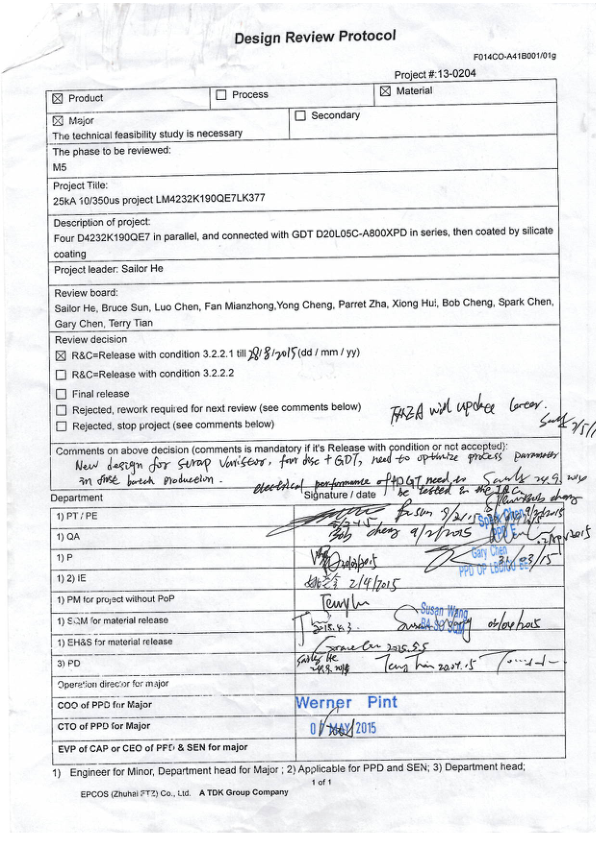 Design Review Protocol
F014CO-A41B001/01g
Project #:13-0204
☒ Product
☐ Process
☒ Material
☒ Major
☐ Secondary
The technical feasibility study is necessary
The phase to be reviewed:
M5
Project Title:
25kA 10/350us project LM4232K190QE7LK377
Description of project:
Four D4232K190QE7 in parallel, and connected with GDT D20L05C-A800XPD in series, then coated by silicate
coating
Project leader: Sailor He
Review board:
Sailor He, Bruce Sun, Luo Chen, Fan Mianzhong,Yong Cheng, Parret Zha, Xiong Hui, Bob Cheng, Spark Chen,
Gary Chen, Terry Tian
Review decision
☒ R&C=Release with condition 3.2.2.1 till 28/8/2015 (dd / mm / yy)
☐ R&C=Release with condition 3.2.2.2
☐ Final release
☐ Rejected, rework required for next review (see comments below)
will update
☐ Rejected, stop project (see comments below)
Comments on above decision (comments is mandatory if it's Release with condition or not accepted):
New design for strap varistor, four disc + GDT, need to optimize process parameter
in first batch production.
electrical performance of GDT need to
be tested in the
Department
Signature / date
1) PT / PE
Spark Chen
1) QA
Bob Cheng 9/2/2015
1) P
Gary Chen
31/03/15
1) 2) IE
2/4/2015
1) PM for project without PoP
1) SQM for material release
2015.4.3
Susan Wang
03/04/2015
1) EH&S for material release
2015.5.5
3) PD
Sailor He
Operation director for major
COO of PPD for Major
Werner Pint
CTO of PPD for Major
MAY 2015
EVP of CAP or CEO of PPD & SEN for major
1) Engineer for Minor, Department head for Major ; 2) Applicable for PPD and SEN; 3) Department head;
1 of 1
EPCOS (Zhuhai FTZ) Co., Ltd. A TDK Group Company